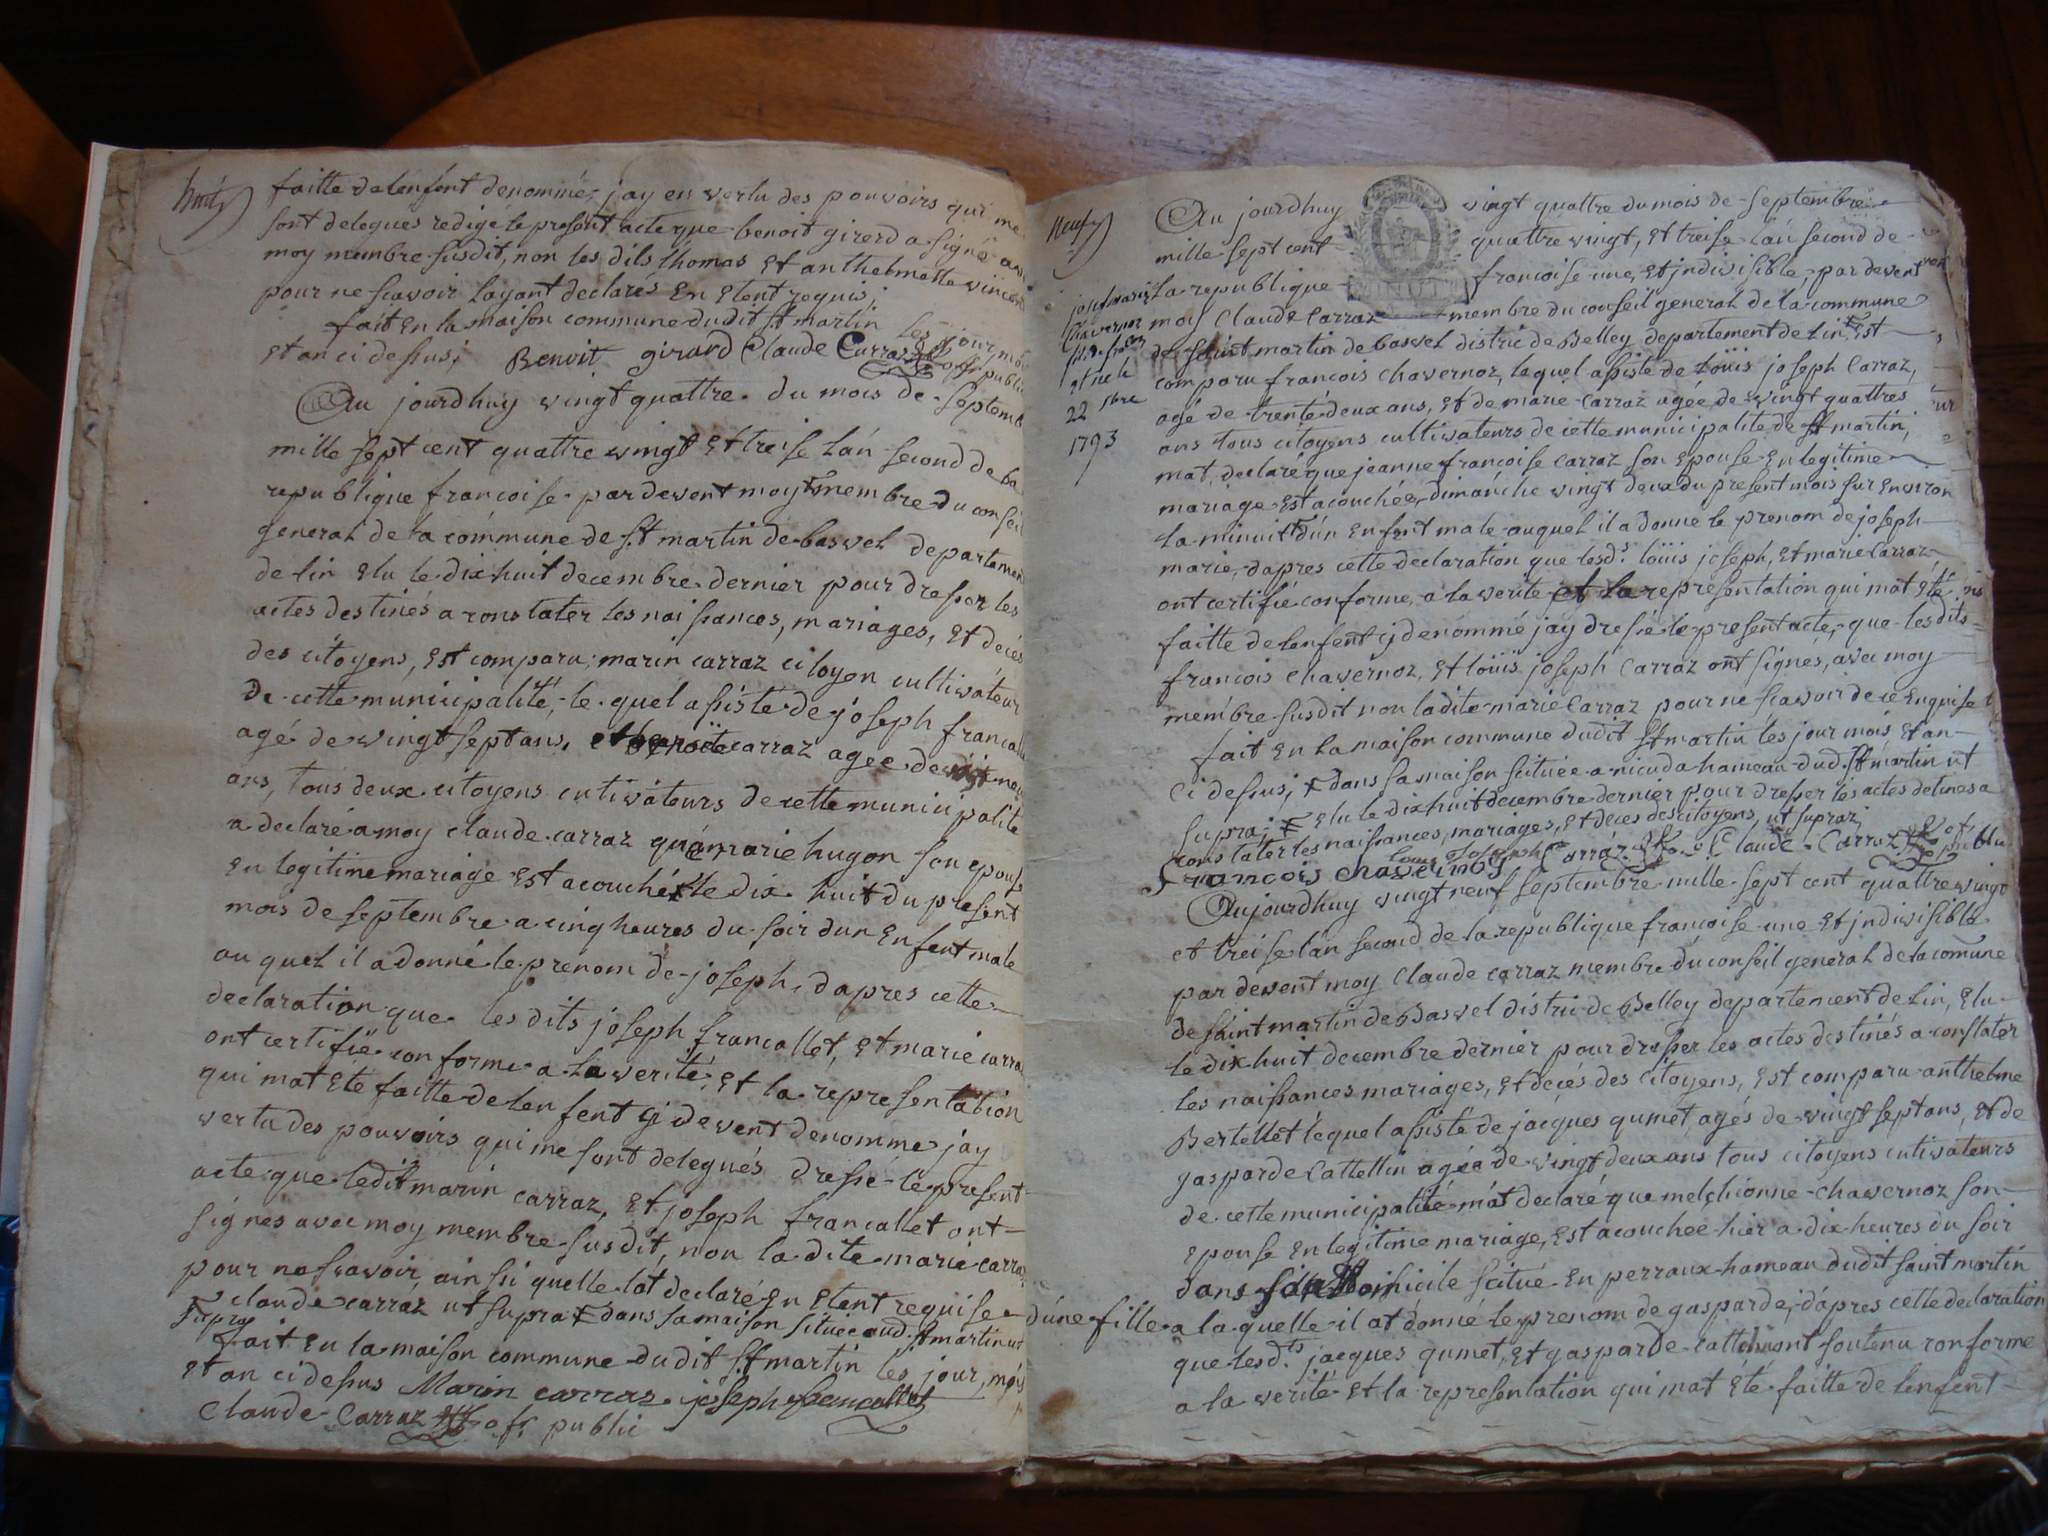 huit
faitte de lenfent denommé, jay en vertu des pouvoirs qui me
sont delegues redige le present acte que benoit girerd a signé avec
moy membre susdit, non les dits thomas Et anthelmette vincent
pour ne scavoir layant declarés En Etent requis;
fait En la maison commune dudit st martin les jour, mois
Et an ci dessus; Benoit girard Claude Carraz off public
Au jourdhuy vingt quattre du mois de septemb
mille sept cent quattre vingt Et treise lán second de la
republique francoise par devent moy membre du conseil
general de la commune de st martin de bavel departement
de lin Elu le dix huit decembre dernier pour dresser les
actes destinés a constater les naissances, mariages, Et décés
des citoyens, Est comparu; marin carraz citoyen cultivateur
de cette municipalité, le quel assisté de joseph francallet
agé de vingt sept ans, et carraz agee de neuf
ans, tous deux citoyens cutivateurs de cette municipalite
a declaré a moy claude carraz que marie hugon son epouse
En legitime mariage Est acouchée le dix huit du present
mois de septembre a cinq heures du soir dun Enfent male
au quel il a donné le prenom de joseph, dapres cette
declaration que les dits joseph francallet, Et marie carraz
ont certifié conforme a la verité, Et la representation
qui mat Ete faitte de lenfent cj devent denomme jay
vertu des pouvoirs qui me sont delegués dresse le present
acte que ledit marin carraz, Et joseph francallet ont
signes avec moy membre susdit, non la dite marie carraz
pour ne scavoir, ainssi quelle lat declaré En Etent requise
claude carraz ut supra dans sa maison située aud. st martin ut
supra
fait En la maison commune dudit st martin les jour, mois
Et an ci dessus Marin carraz joseph francallet
Claude Carraz off public
neuf
joseph marie
Chavernoz
né le
22 7bre
1793
Au jourdhuy vingt quattre du mois de septembre
mille sept cent quattre vingt, Et treise lán second de
la republique francoise une, Et jndivisible, par devent
moy Claude Carraz membre du conseil general de la commune
de saint martin de bavel distric de Belley departement de lin Est
comparu francois chavernoz, lequel assisté de loüis joseph Carraz,
agé de trente deux ans, Et de marie Carraz agée de vingt quattres
ans tous citoyens cultivateurs de cette municipalite de st martin,
mat, declaré que jeanne francoise carraz son epouse En legitime
mariage Est acouchée, dimanche vingt deux du present mois sur Environ
la minuit dún Enfent male auquel il a donne le prenom de joseph
marie, dapres cette declaration que lesd.s loüis joseph, Et marie Carraz
ont certifié conforme, a la verite et la representation qui mat Eté
faitte de lenfent cj denommé jay dressé le present acte, que lesdits
francois chavernoz, Et loüis joseph Carraz ont signés, avec moy
membre susdit non ladite marie Carraz pour ne scavoir de ce Enquise
fait En la maison commune dudit st martin les jour mois Et an
ci dessus; dans sa maison scituée a hameau dud. st martin ut
supra; Elu le dix huit decembre dernier pour dresser les actes detines a
constater les naissances, mariages, Et deces des citoyens, ut supra;
francois chavernoz louis joseph Carraz Claude Carraz off publi
Aujourdhuy vingt neuf septembre mille sept cent quattre vingt
et treise lán second de la republique francoise une Et jndivisible
par devent moy Claude carraz membre du conseil general de la comune
de saint martin de Bavel distric de Belley departement de lin, Elu
le dix huit decembre dernier pour dresser les actes destinés a constater
les naissances mariages, Et décés des citoyens, Est comparu anthelme
Bertellet lequel assisté de jacques qumet, agés de vingt sept ans, Et de
gasparde Cattellin agée de vingt deux ans tous citoyens cutivateurs
de cette municipalité mat declaré que melchionne chavernoz son
epouse En legitime mariage, Est acouchee hier a dix heures du soir
dans son Domicile scitué En perraux hameau dudit saint martin
dúne fille a la quelle il at dónné le prenom de gasparde, dapres cette declaration
que lesd.ts jacques qumet, Et gasparde cattelin ont soutenu conforme
a la verité Et la representation qui mat Été faitte de lenfent